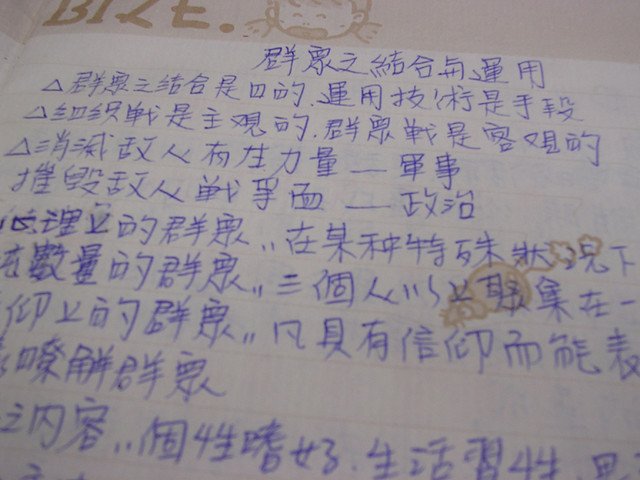 BIZE.
群眾之結合与運用
△群眾之結合是目的.運用技術是手段
△組织戰是主观的.群眾戰是客观的
△消滅敌人有生力量—軍事
摧毀敌人戰爭面—政治
心理上的群眾,,在某种特殊狀况下
數量的群眾,,三個人以上聚集在一
仰上的群眾,,凡具有信仰而能表
瞭解群眾
之内容,,個性嗜好.生活習性.